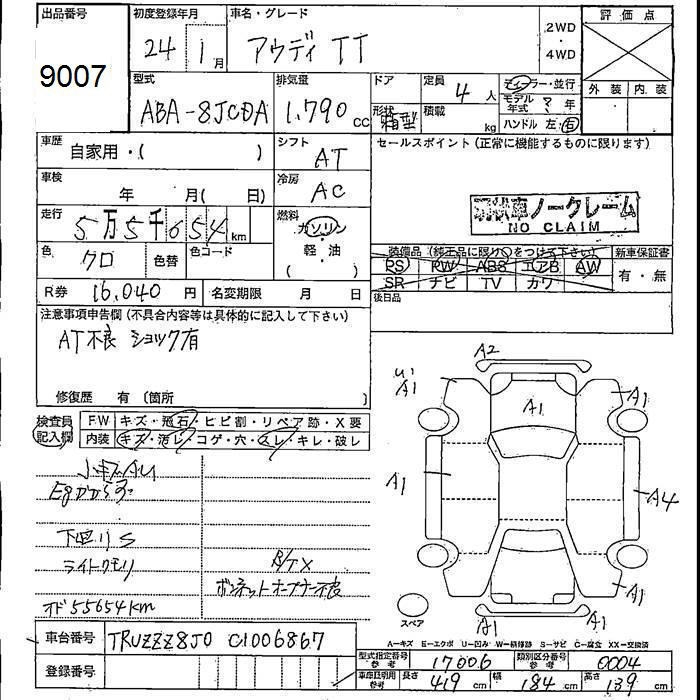 出品番号
9007
初度登録年月
24 1月
車名・グレード
アウディ TT
2WD
・
4WD
評価点
外装 内装
型式
ABA-8JCDA
排気量
1,790 cc
ドア
形状
箱型
定員
4 人
積載
kg
ディーラー・並行
モデル年式 ? 年
ハンドル 左・右
車歴
自家用・( )
シフト
AT
セールスポイント (正常に機能するものに限ります)
車検
年 月( 日)
冷房
AC
現状車ノークレーム
NO CLAIM
走行
5万5千654km
燃料
ガソリン
・
軽・油
( )
色
クロ
色替
色コード
装備品 (純正品に限り○をつけて下さい)
PS RW ABS エアB AW
SR ナビ TV カワ
新車保証書
有・無
R券 16,040 円
名変期限 月 日
後日品
注意事項申告欄 (不具合内容等は具体的に記入して下さい)
AT不良 ショック有
修復歴 有 (箇所 )
検査員
記入欄
FW キズ・飛石・ヒビ割・リペア跡・X要
内装 キズ・汚レ・コゲ・穴・スレ・キレ・破レ
小キズAU
下回りS
ライトクモリ
ボンネットオープナー不良
オド55654km
A2
A1
A1
A1
A1
A4
A1
A1
A1
スペア
A―キズ E―エクボ U―凹み W―補修跡 S―サビ C―腐食 XX―交換済
車台番号 TRUZZZ8J0 C1006867
登録番号
型式指定番号
参考
17006
類別区分番号
参考
0004
車庫証明用
参考
長さ 419 cm 幅 184 cm 高さ 139 cm